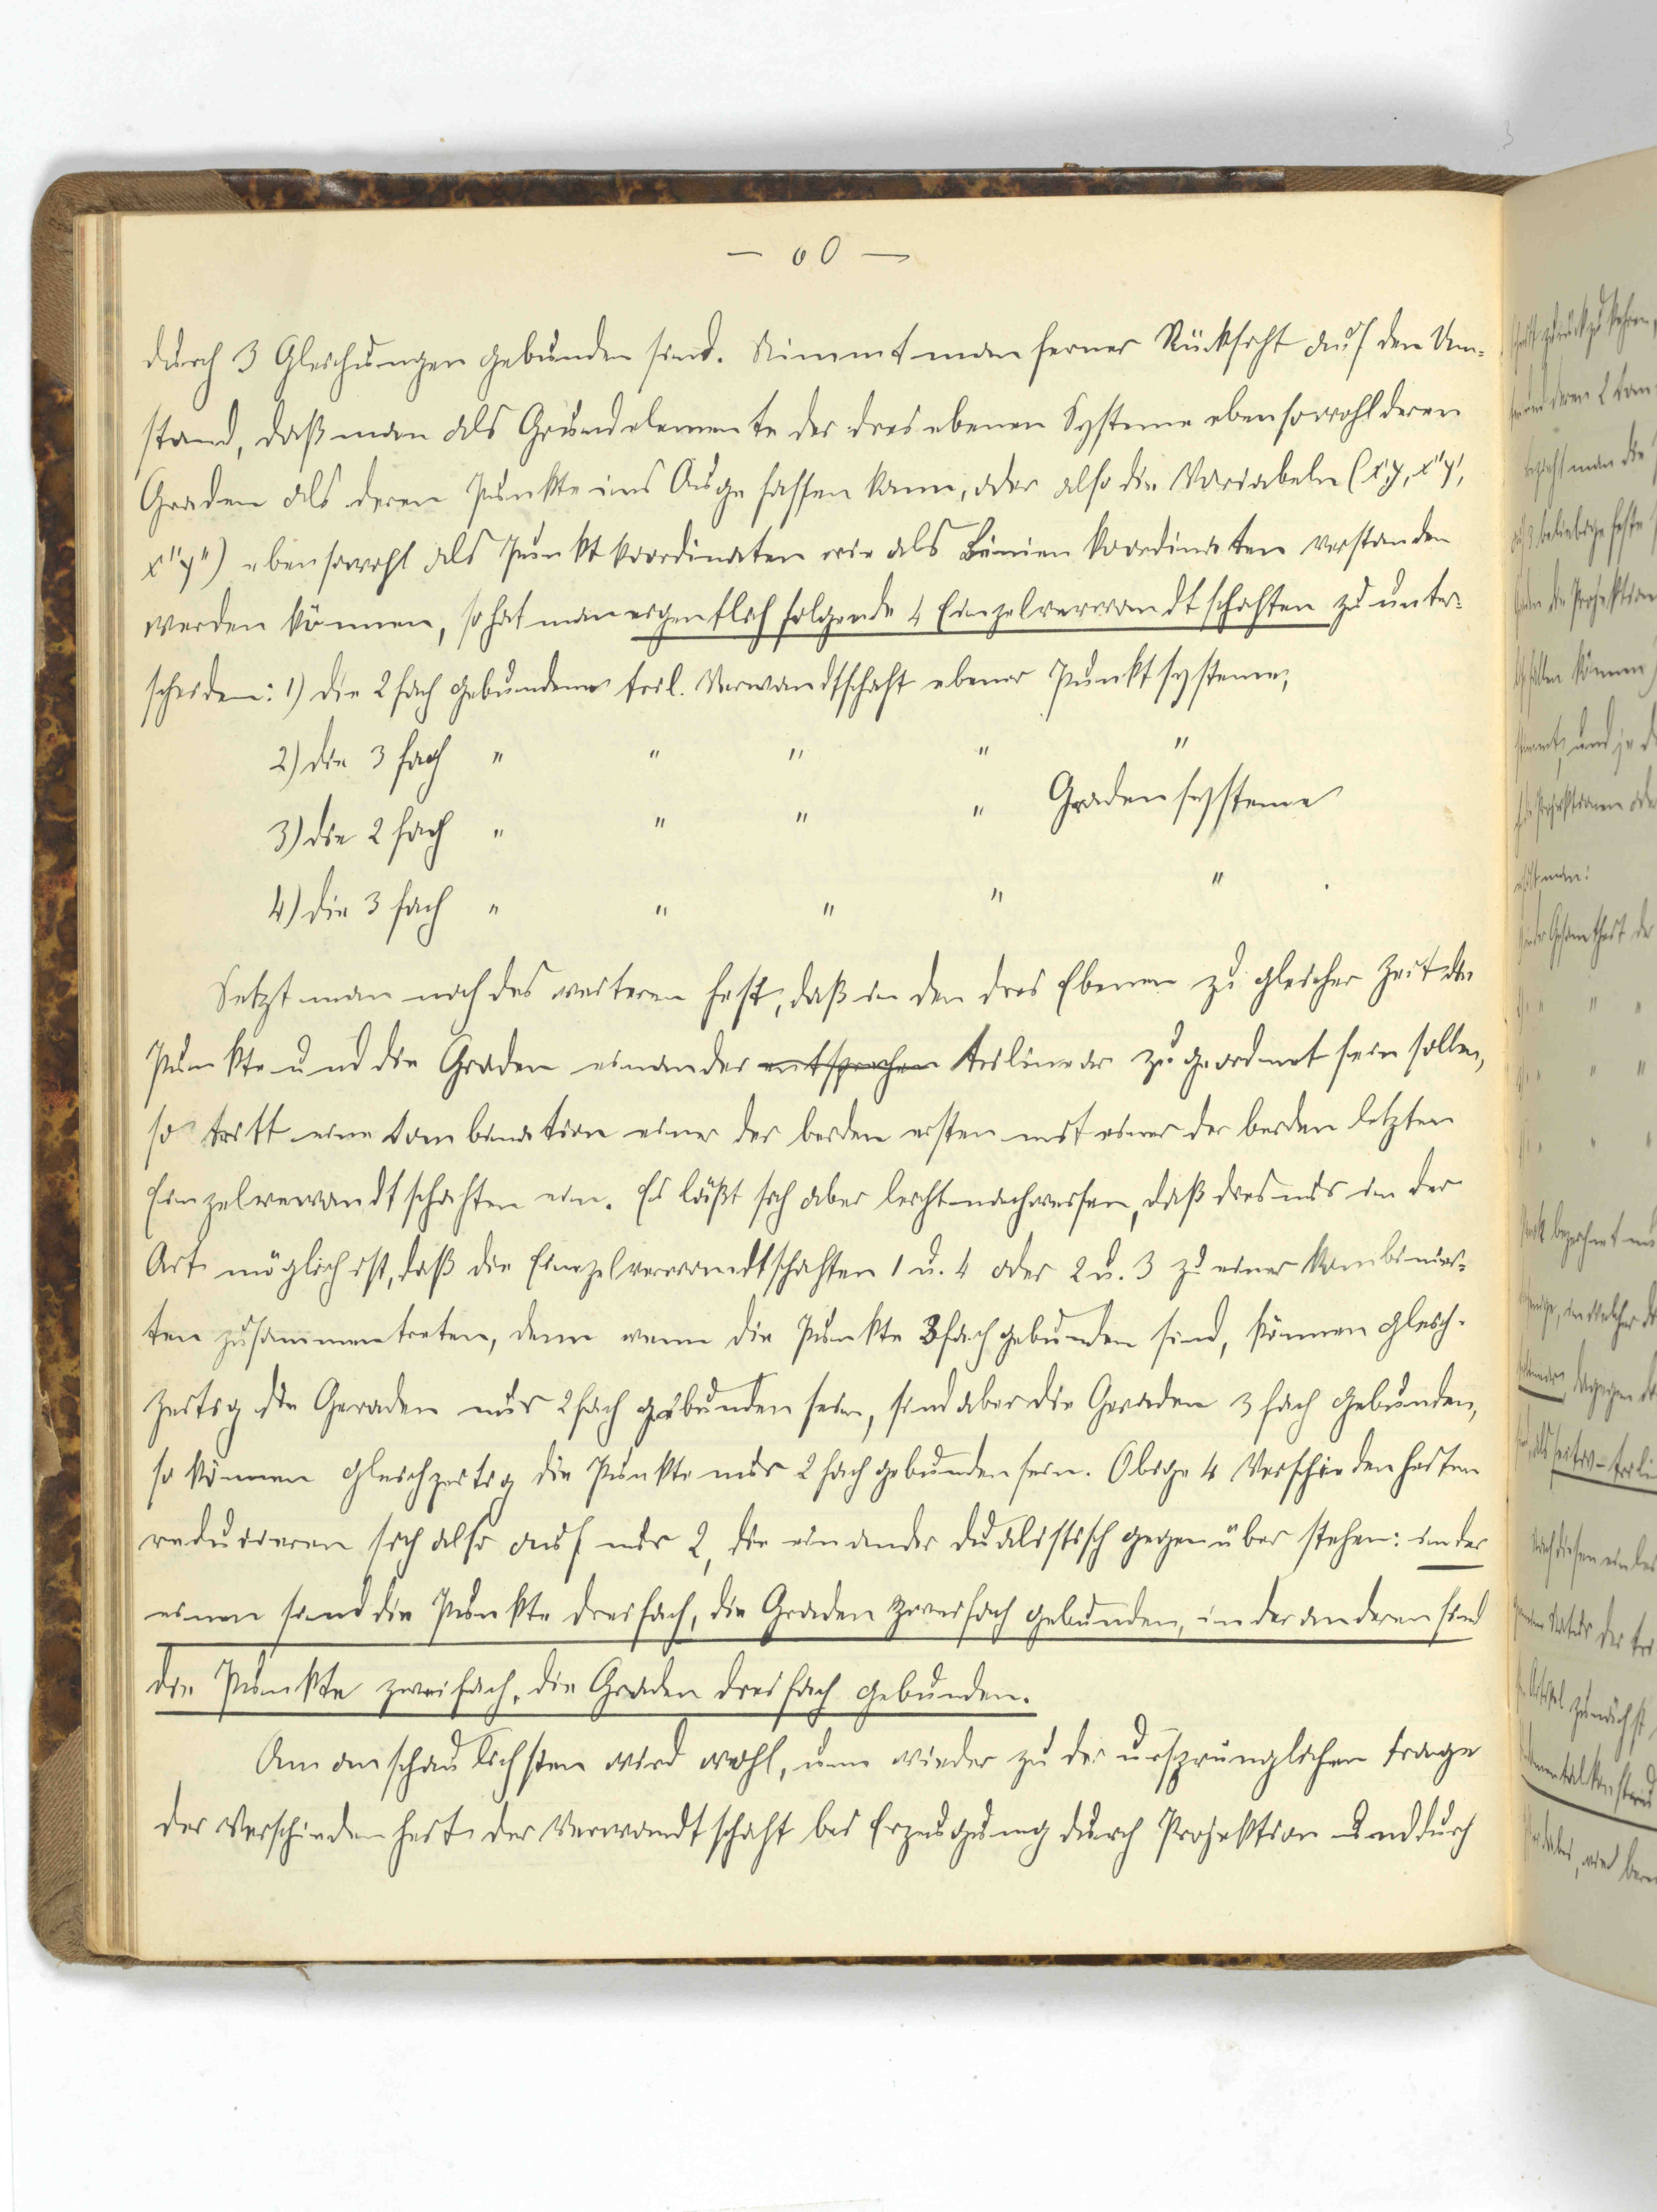 — 60 —
durch 3 Gleichungen gebunden sind. Nimmt man ferner Rücksicht auf den Um-
stand, daß man als Grundelemente der drei ebenen Systeme ebensowohl deren
Graden als deren Punkte ins Auge fassen kann, oder also die Variabeln (x'y, x"y',
x"y") ebensowohl als Punktkoordinaten wie als Linienkoordinaten verstanden
werden können, so hat man eigentlich folgende 4 Einzelverwandtschaften zu unter-
scheiden: 1) die 2fach gebundene tril. Verwandtschaft ebener Punktsysteme,
2) die 3 fach " " " " "
3) die 2 fach " " " " Gradensysteme
4) die 3 fach " " " " " .
Setzt man noch des weiteren fest, daß in den drei Ebenen zu gleicher Zeit die
Punkte und die Graden einander entsprechen trilinear zugeordnet sein sollen,
so tritt eine Combination einer der beiden ersten mit einer der beiden letzten
Einzelverwandtschaften ein. Es läßt sich aber leicht nachweisen, daß dies nur in der
Art möglich ist, daß die Einzelverwandtschaften 1 u. 4 oder 2 u. 3 zu einer kombinier-
ten zusammentreten, denn wenn die Punkte 3fach gebunden sind, können gleich-
zeitig die Geraden nur 2fach gebunden sein, sind aber die Geraden 3 fach gebunden,
so können gleichzeitig die Punkte nur 2 fach gebunden sein. Obige 4 Verschiedenheiten
reducieren sich also auf nur 2, die einander dualistisch gegenüber stehen: in der
einen sind die Punkte dreifach, die Graden zweifach gebunden, in der anderen sind
die Punkte zweifach, die Graden dreifach gebunden.
Am anschaulichsten wird wohl, um wieder zu der ursprünglichen Frage
der Verschiedenheit der Verwandtschaft bei Erzeugung durch Projektion und durch